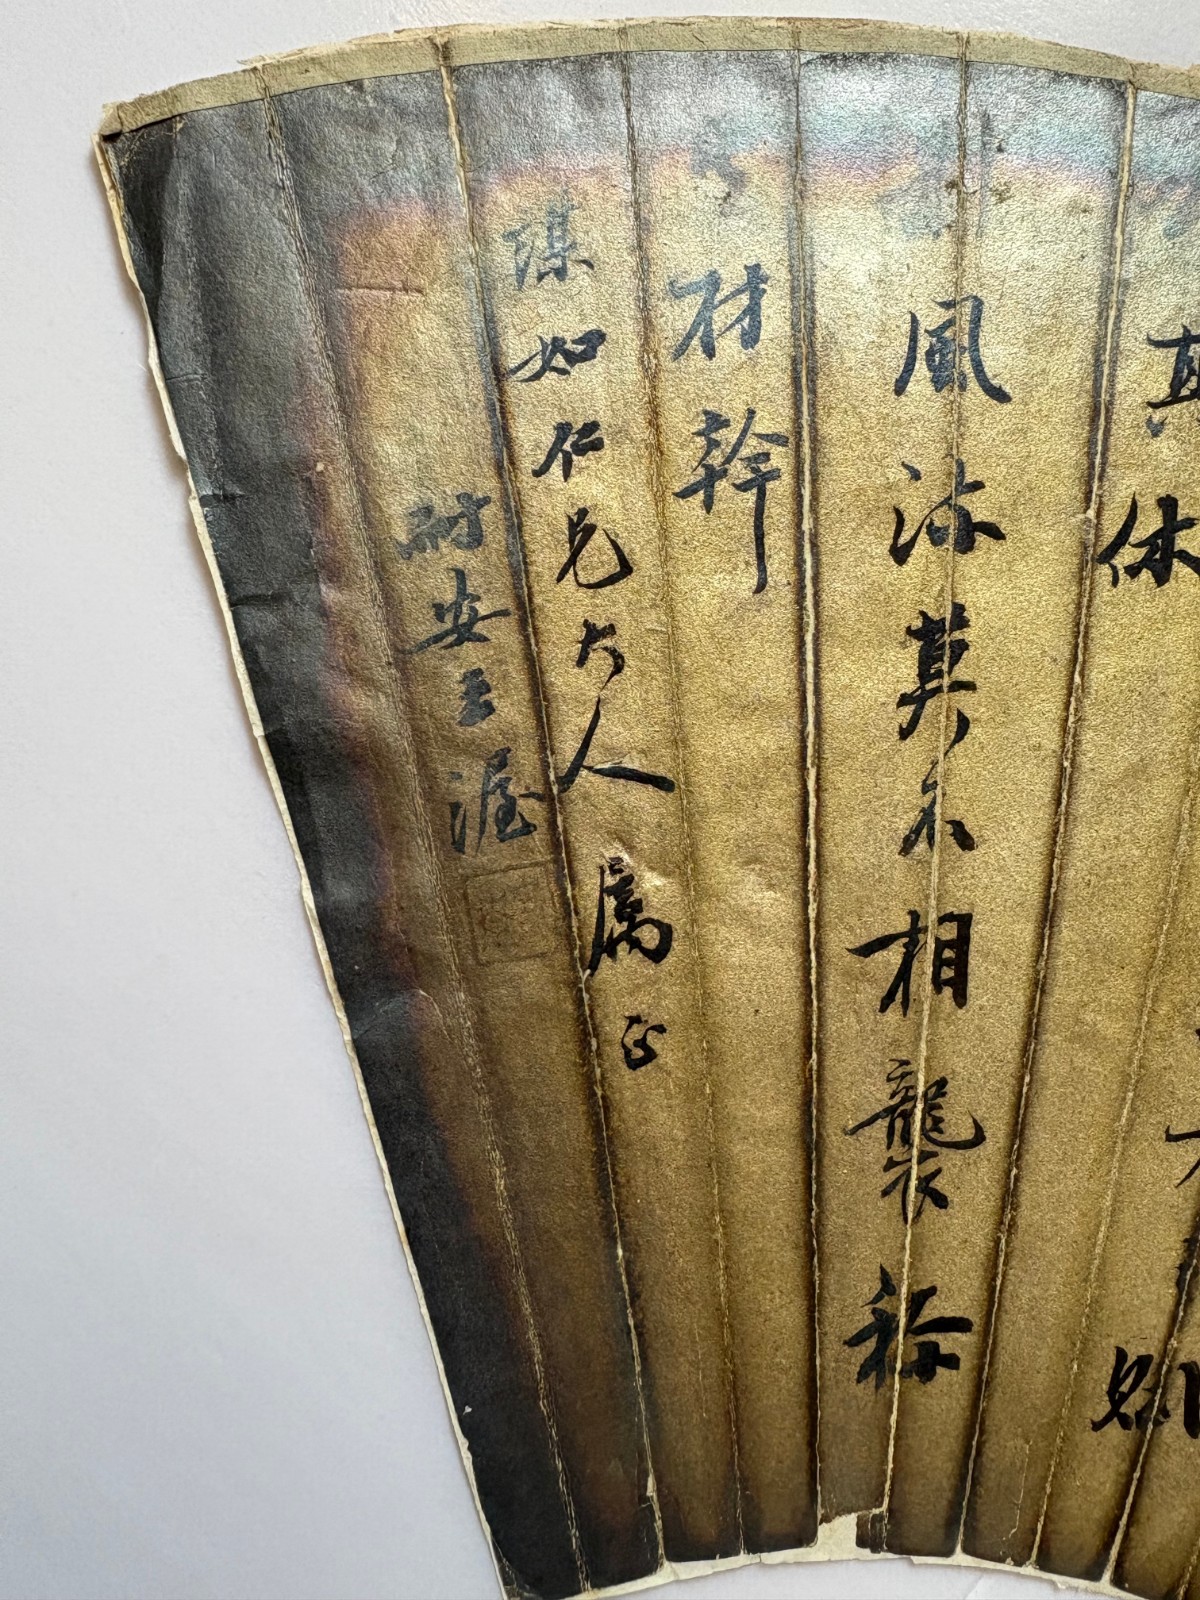 真休
風流莫不相襲稱
材幹
如仁兄大人屬正
耐安王渥